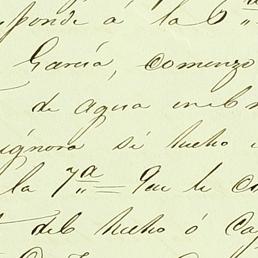 sponde á la 6ª
García, comenzo
de agua
ignora si hecho
la 7ª = Que le
del hecho ó